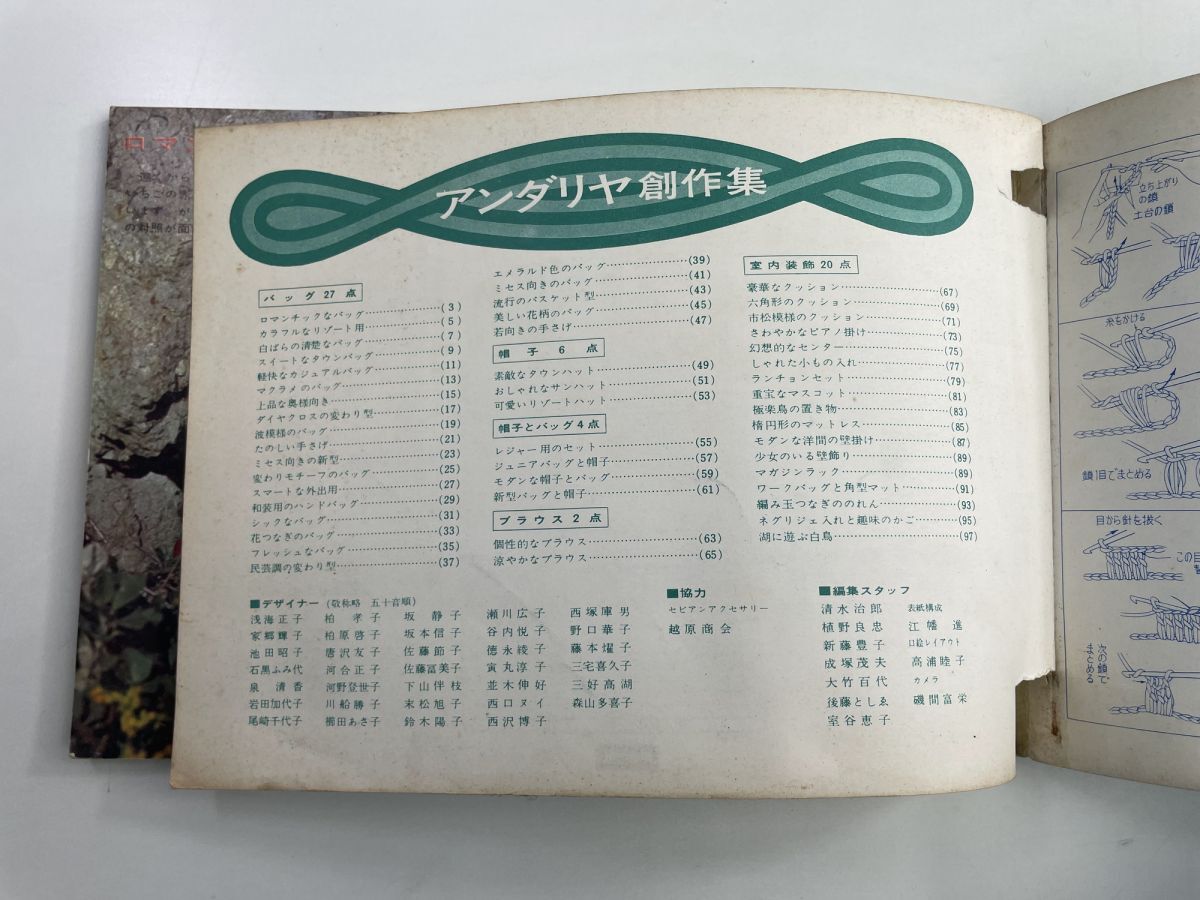 アンダリヤ創作集
バッグ27点
ロマンチックなバッグ…(3)
カラフルなリゾート用…(5)
白ばらの清楚なバッグ…(7)
スイートなタウンバッグ…(9)
軽快なカジュアルバッグ…(11)
マクラメのバッグ…(13)
上品な奥様向き…(15)
ダイヤクロスの変わり型…(17)
波模様のバッグ…(19)
たのしい手さげ…(21)
ミセス向きの新型…(23)
変わりモチーフのバッグ…(25)
スマートな外出用…(27)
和装用のハンドバッグ…(29)
シックなバッグ…(31)
花つなぎのバッグ…(33)
フレッシュなバッグ…(35)
民芸調の変わり型…(37)
エメラルド色のバッグ…(39)
ミセス向きのバッグ…(41)
流行のバスケット型…(43)
美しい花柄のバッグ…(45)
若向きの手さげ…(47)
帽子 6点
素敵なタウンハット…(49)
おしゃれなサンハット…(51)
可愛いリゾートハット…(53)
帽子とバッグ4点
レジャー用のセット…(55)
ジュニアバッグと帽子…(57)
モダンな帽子とバッグ…(59)
新型バッグと帽子…(61)
ブラウス2点
個性的なブラウス…(63)
涼やかなブラウス…(65)
室内装飾20点
豪華なクッション…(67)
六角形のクッション…(69)
市松模様のクッション…(71)
さわやかなピアノ掛け…(73)
幻想的なセンター…(75)
しゃれた小もの入れ…(77)
ランチョンセット…(79)
重宝なマスコット…(81)
極楽鳥の置き物…(83)
楕円形のマットレス…(85)
モダンな洋間の壁掛け…(87)
少女のいる壁飾り…(89)
マガジンラック…(89)
ワークバッグと角型マット…(91)
編み玉つなぎののれん…(93)
ネグリジェ入れと趣味のかご…(95)
湖に遊ぶ白鳥…(97)
■デザイナー (敬称略 五十音順)
浅海正子 柏 孝子 坂 静子 瀬川広子 西塚庫男
家郷輝子 柏原啓子 坂本信子 谷内悦子 野口華子
池田昭子 唐沢友子 佐藤節子 徳永綾子 藤本燿子
石黒ふみ代 河合正子 佐藤冨美子 寅丸淳子 三宅喜久子
泉 清香 河野登世子 下山伴枝 並木伸好 三好高湖
岩田加代子 川船勝子 末松旭子 西口ヌイ 森山多喜子
尾崎千代子 櫛田あさ子 鈴木陽子 西沢博子
■協力
セビアンアクセサリー
越原商会
■編集スタッフ
清水治郎 表紙構成
植野良忠 江幡 進
新藤豊子 口絵レイアウト
成塚茂夫 高浦睦子
大竹百代 カメラ
後藤としゑ 磯間富栄
室谷恵子
立ち上がり
の鎖
土台の鎖
糸をかける
鎖1目でまとめる
目から針を抜く
この目
次の鎖で
まとめる
ロマン
いちごの
の対照が面